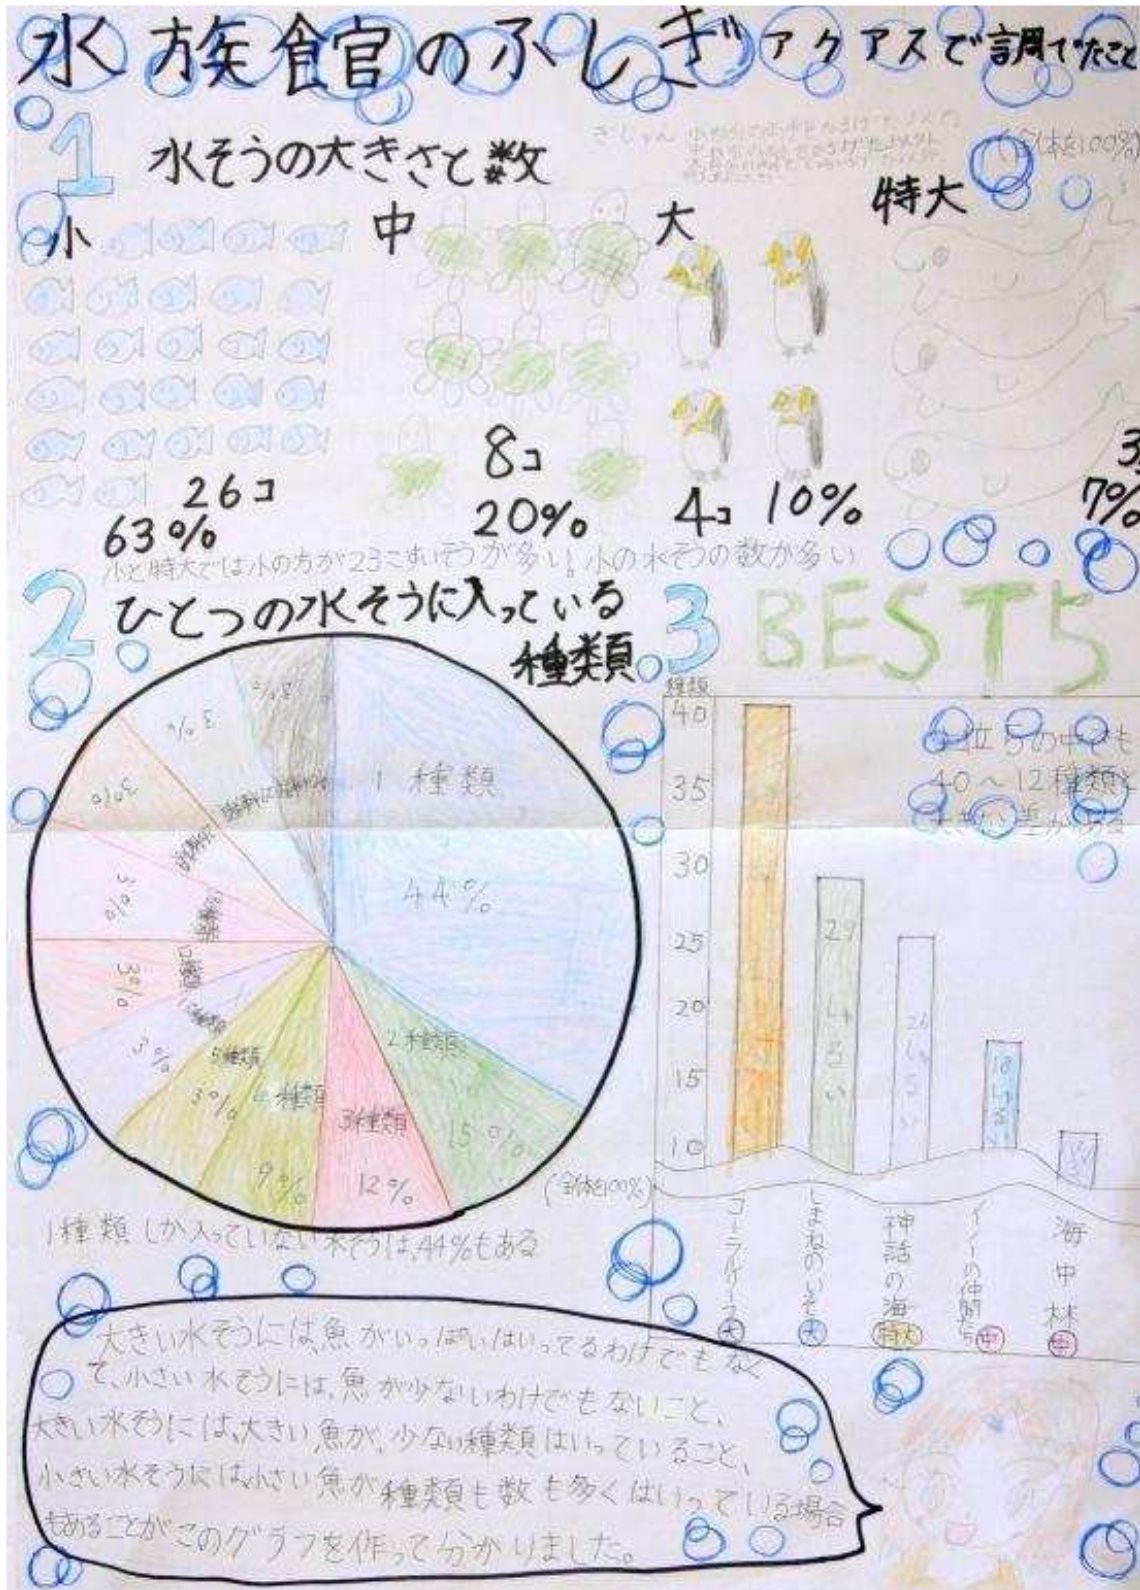 水族館のふしぎ アクアスで調べたこと
1 水そうの大きさと数
(全体を100%)
小
中
大
特大
26コ
63%
8コ
20%
4コ 10%
3
7%
小と特大では小の方が23こすいそうが多い。小の水そうの数が多い
2 ひとつの水そうに入っている
種類
1種類
44%
2種類
15%
3種類
12%
4種類
9%
5種類
3%
3%
3%
3%
3%
3%
3%
(全体を100%)
1種類しか入っていない水そうは、44%もある
3 BEST5
種類
40
35
30
25
20
15
10
位5の中でも
40〜12種類と
大きな差がある
29しるい
26しゅるい
18しゅるい
大
しまねのいそ 大
神話の海 特大
イノーの仲間たち 中
海中林 中
大きい水そうには、魚がいっぱいはいってるわけでもなく
て、小さい水そうには、魚が少ないわけでもないこと、
大きい水そうには、大きい魚が、少ない種類はいっていること、
小さい水そうには小さい魚が種類も数も多くはいっている場合
もあることがこのグラフを作って分かりました。